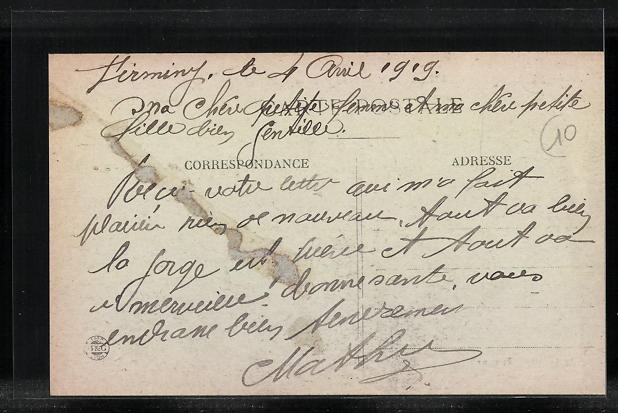 Firminy, le 4 Avril 1919.
CARTE POSTALE
Ma Chère petite femme et ma chère petite
fille bien gentille.
10
CORRESPONDANCE
ADRESSE
Reçu votre letter qui m'a fait
plaisir rien de nouveau, tout va bien
la forge est et tout va
a merveille. bonne santé, vous
bien
Mathieu